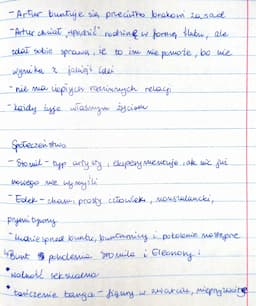 - Artur buntuje się przeciwko brakowi zasad
- Artur chciał "wpędzić" rodzinę w formę ślubu, ale
zdał sobie sprawę, że to im nie pomoże, bo nie
wynika z jakiejś idei
- nie ma ciepłych rodzinnych relacji
- każdy żyje własnym życiem
Społeczeństwo
- Stomil - typ artysty, eksperymentuje, ale nic już
nowego nie wymyśli
- Edek - cham, prosty człowiek, nonszalancki,
prymitywny
- ludzie sprzed buntu, buntownicy i pokolenie następne
Bunt pokolenia Stomila i Eleonory:
• wolność seksualna
• tańczenie tanga - figury w